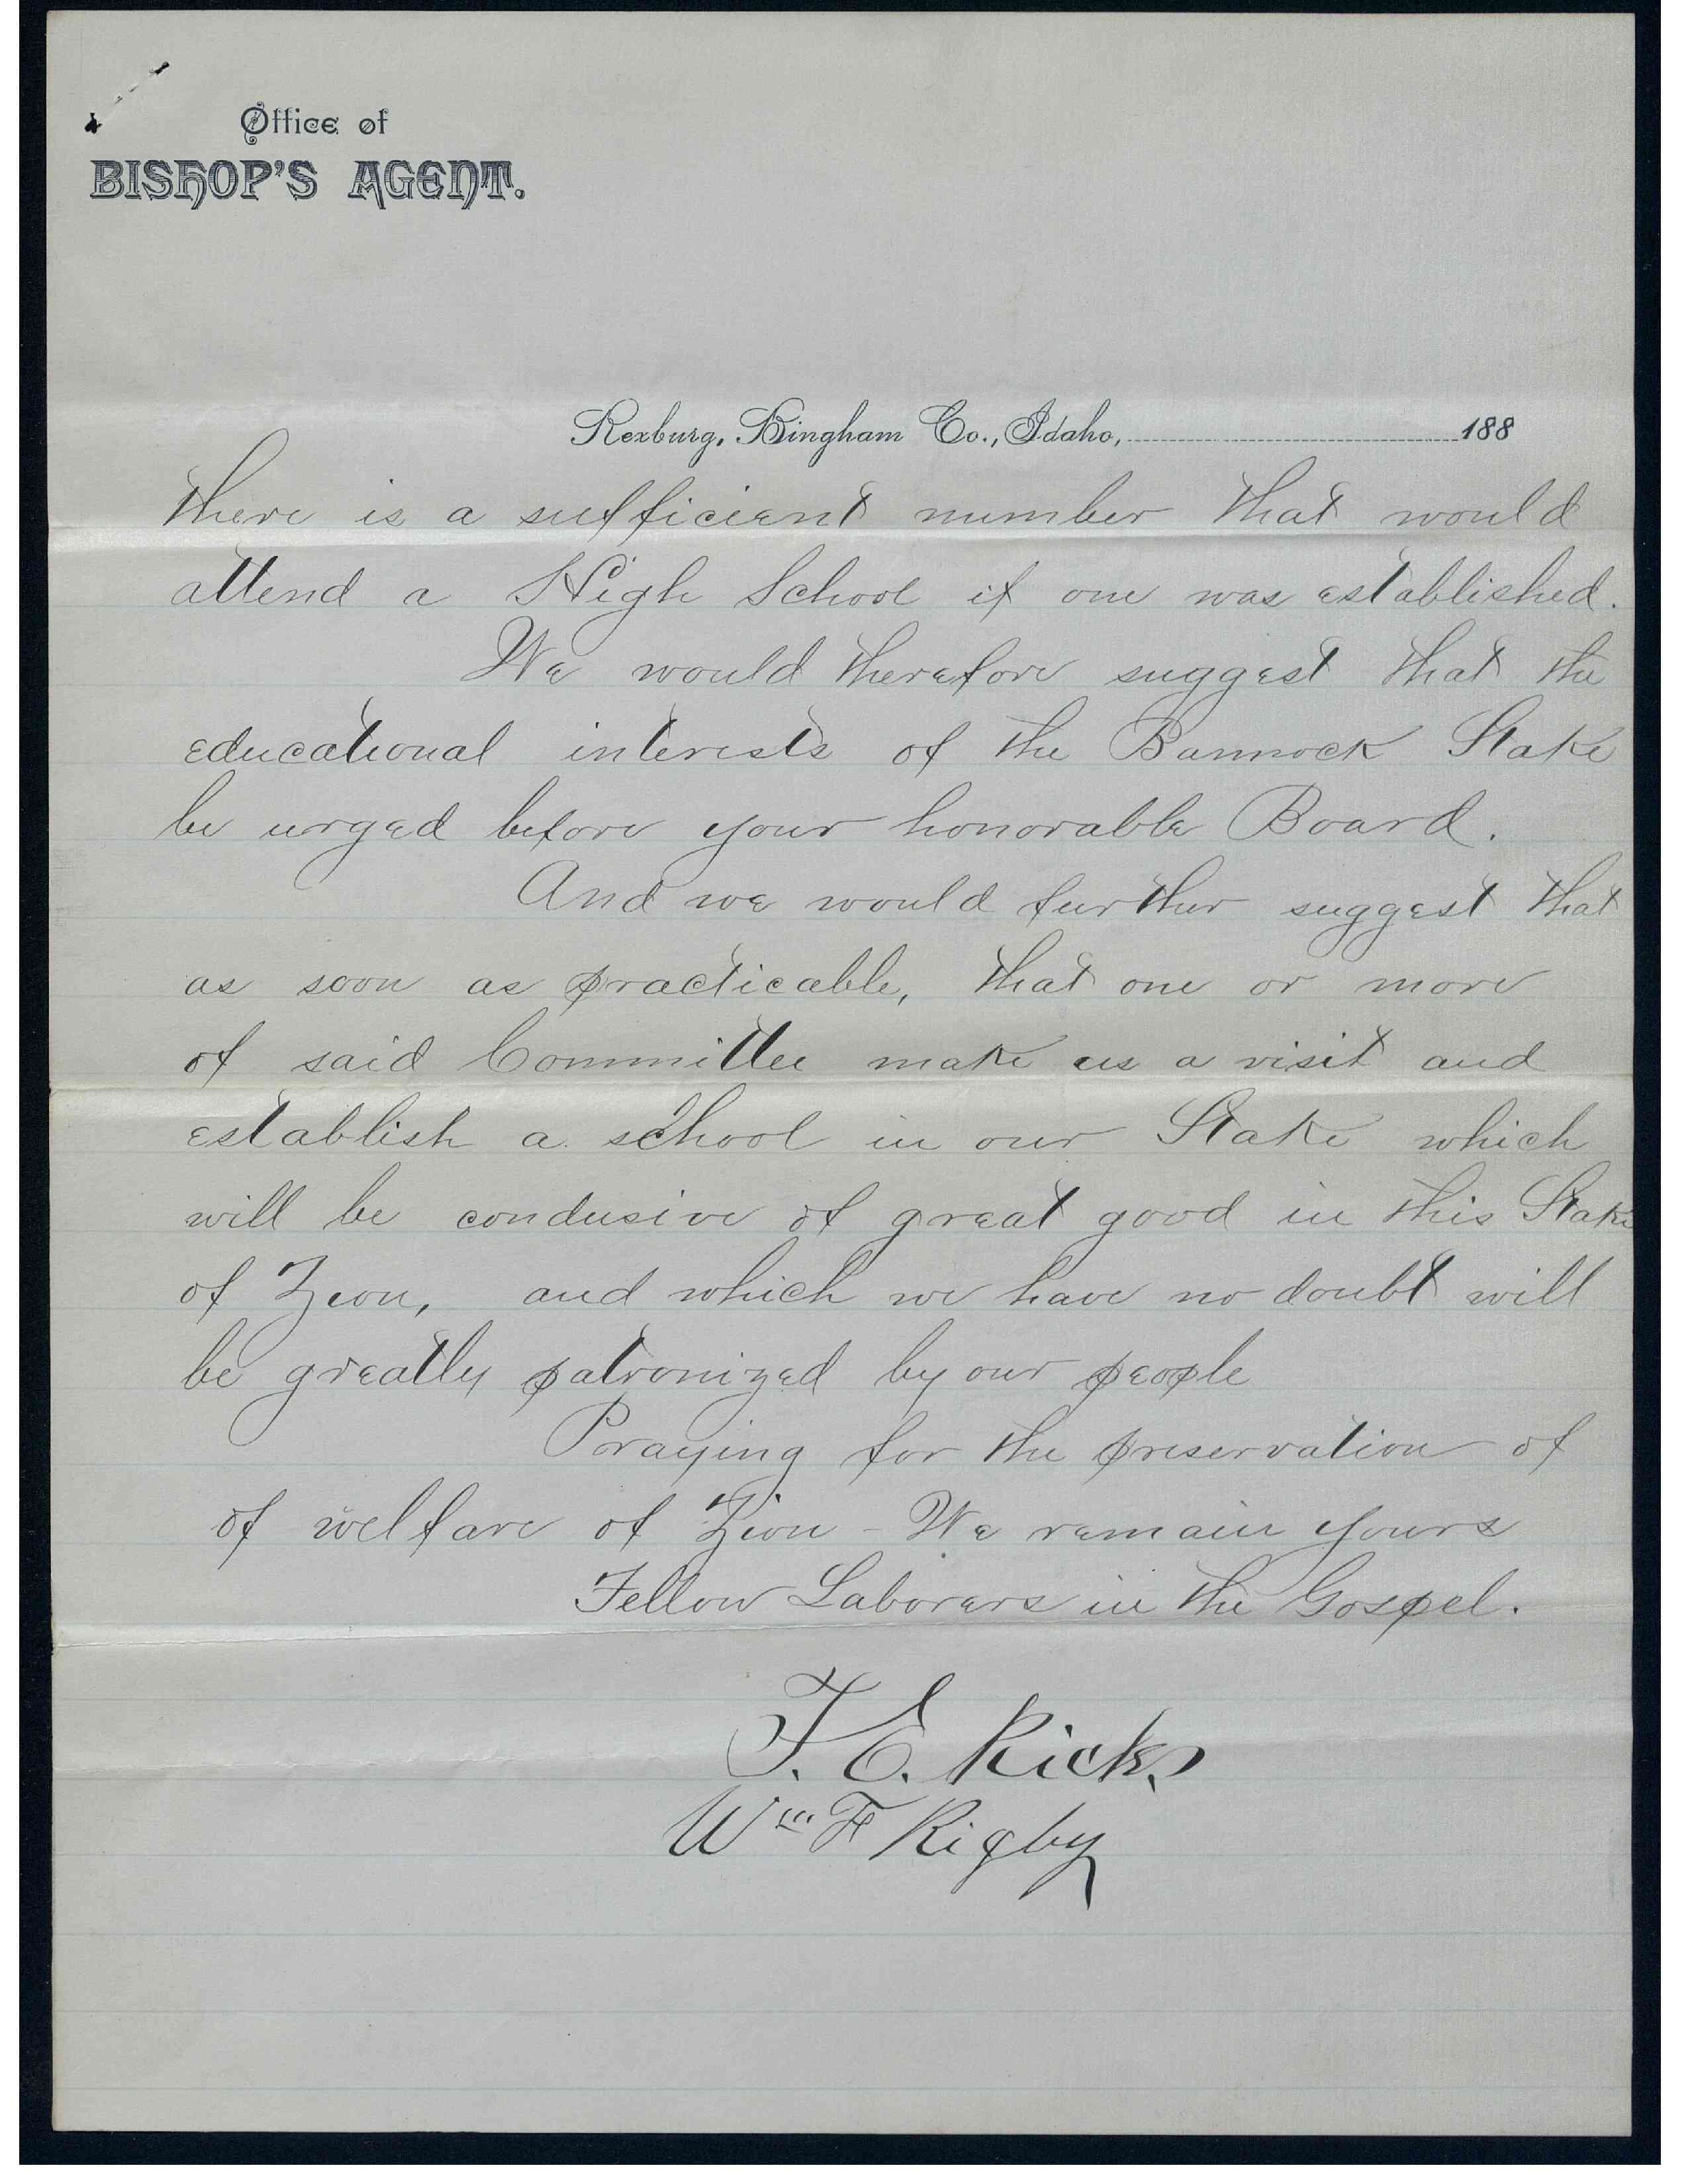 Office of
BISHOP'S AGENT.
Rexburg, Bingham Co., Idaho, 188
there is a sufficient number that would
attend a High School if one was established.
We would therefore suggest that the
educational interests of the Bannock Stake
be urged before your honorable Board.
And we would further suggest that
as soon as practicable, that one or more
of said Committee make us a visit and
establish a school in our Stake which
will be condusive of great good in this Stake
of Zion, and which we have no doubt will
be greatly patronized by our people
Praying for the preservation of
of welfare of Zion - We remain yours
Fellow Laborers in the Gospel.
T. E. Ricks
Wm F Rigby